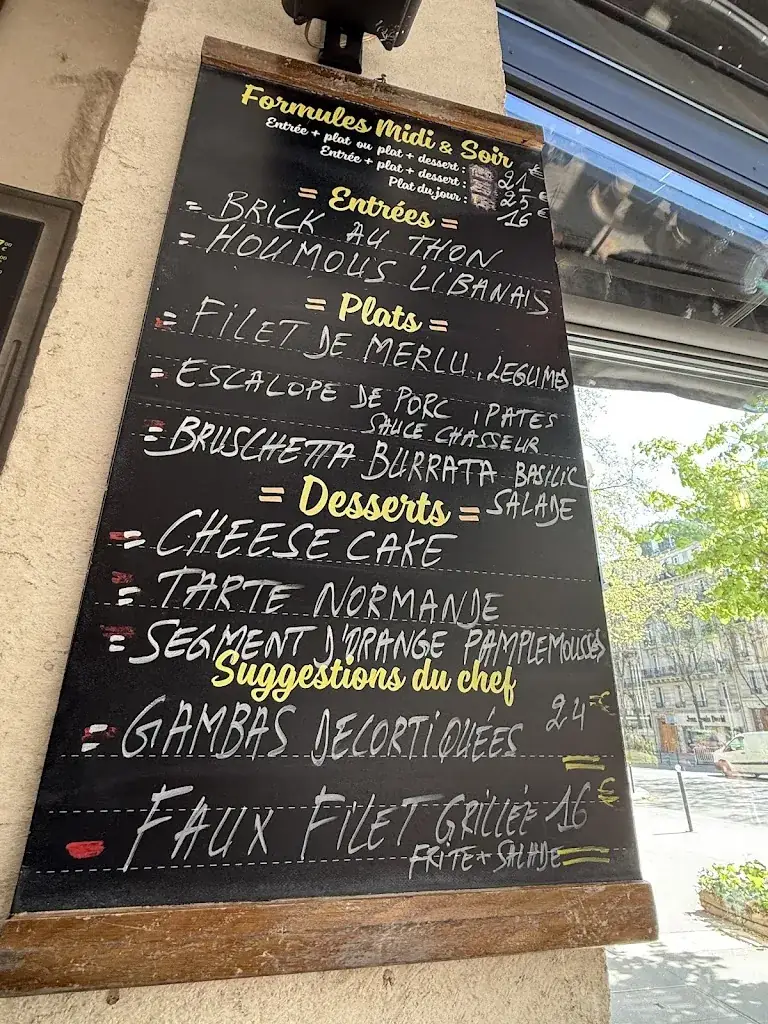 Formules Midi & Soir
Entrée + plat ou plat + dessert : 21 €
Entrée + plat + dessert : 25 €
Plat du jour : 16 €
= Entrées =
= BRICK AU THON
= HOUMOUS LIBANAIS
= Plats =
= FILET DE MERLU, LEGUMES
= ESCALOPE DE PORC, PATES
SAUCE CHASSEUR
= BRUSCHETTA BURRATA BASILIC
SALADE
= Desserts =
= CHEESE CAKE
= TARTE NORMANDE
= SEGMENT D'ORANGE PAMPLEMOUSSES
Suggestions du chef
= GAMBAS DECORTIQUÉES 24 €
FAUX FILET GRILLÉE 16 €
FRITE + SALADE